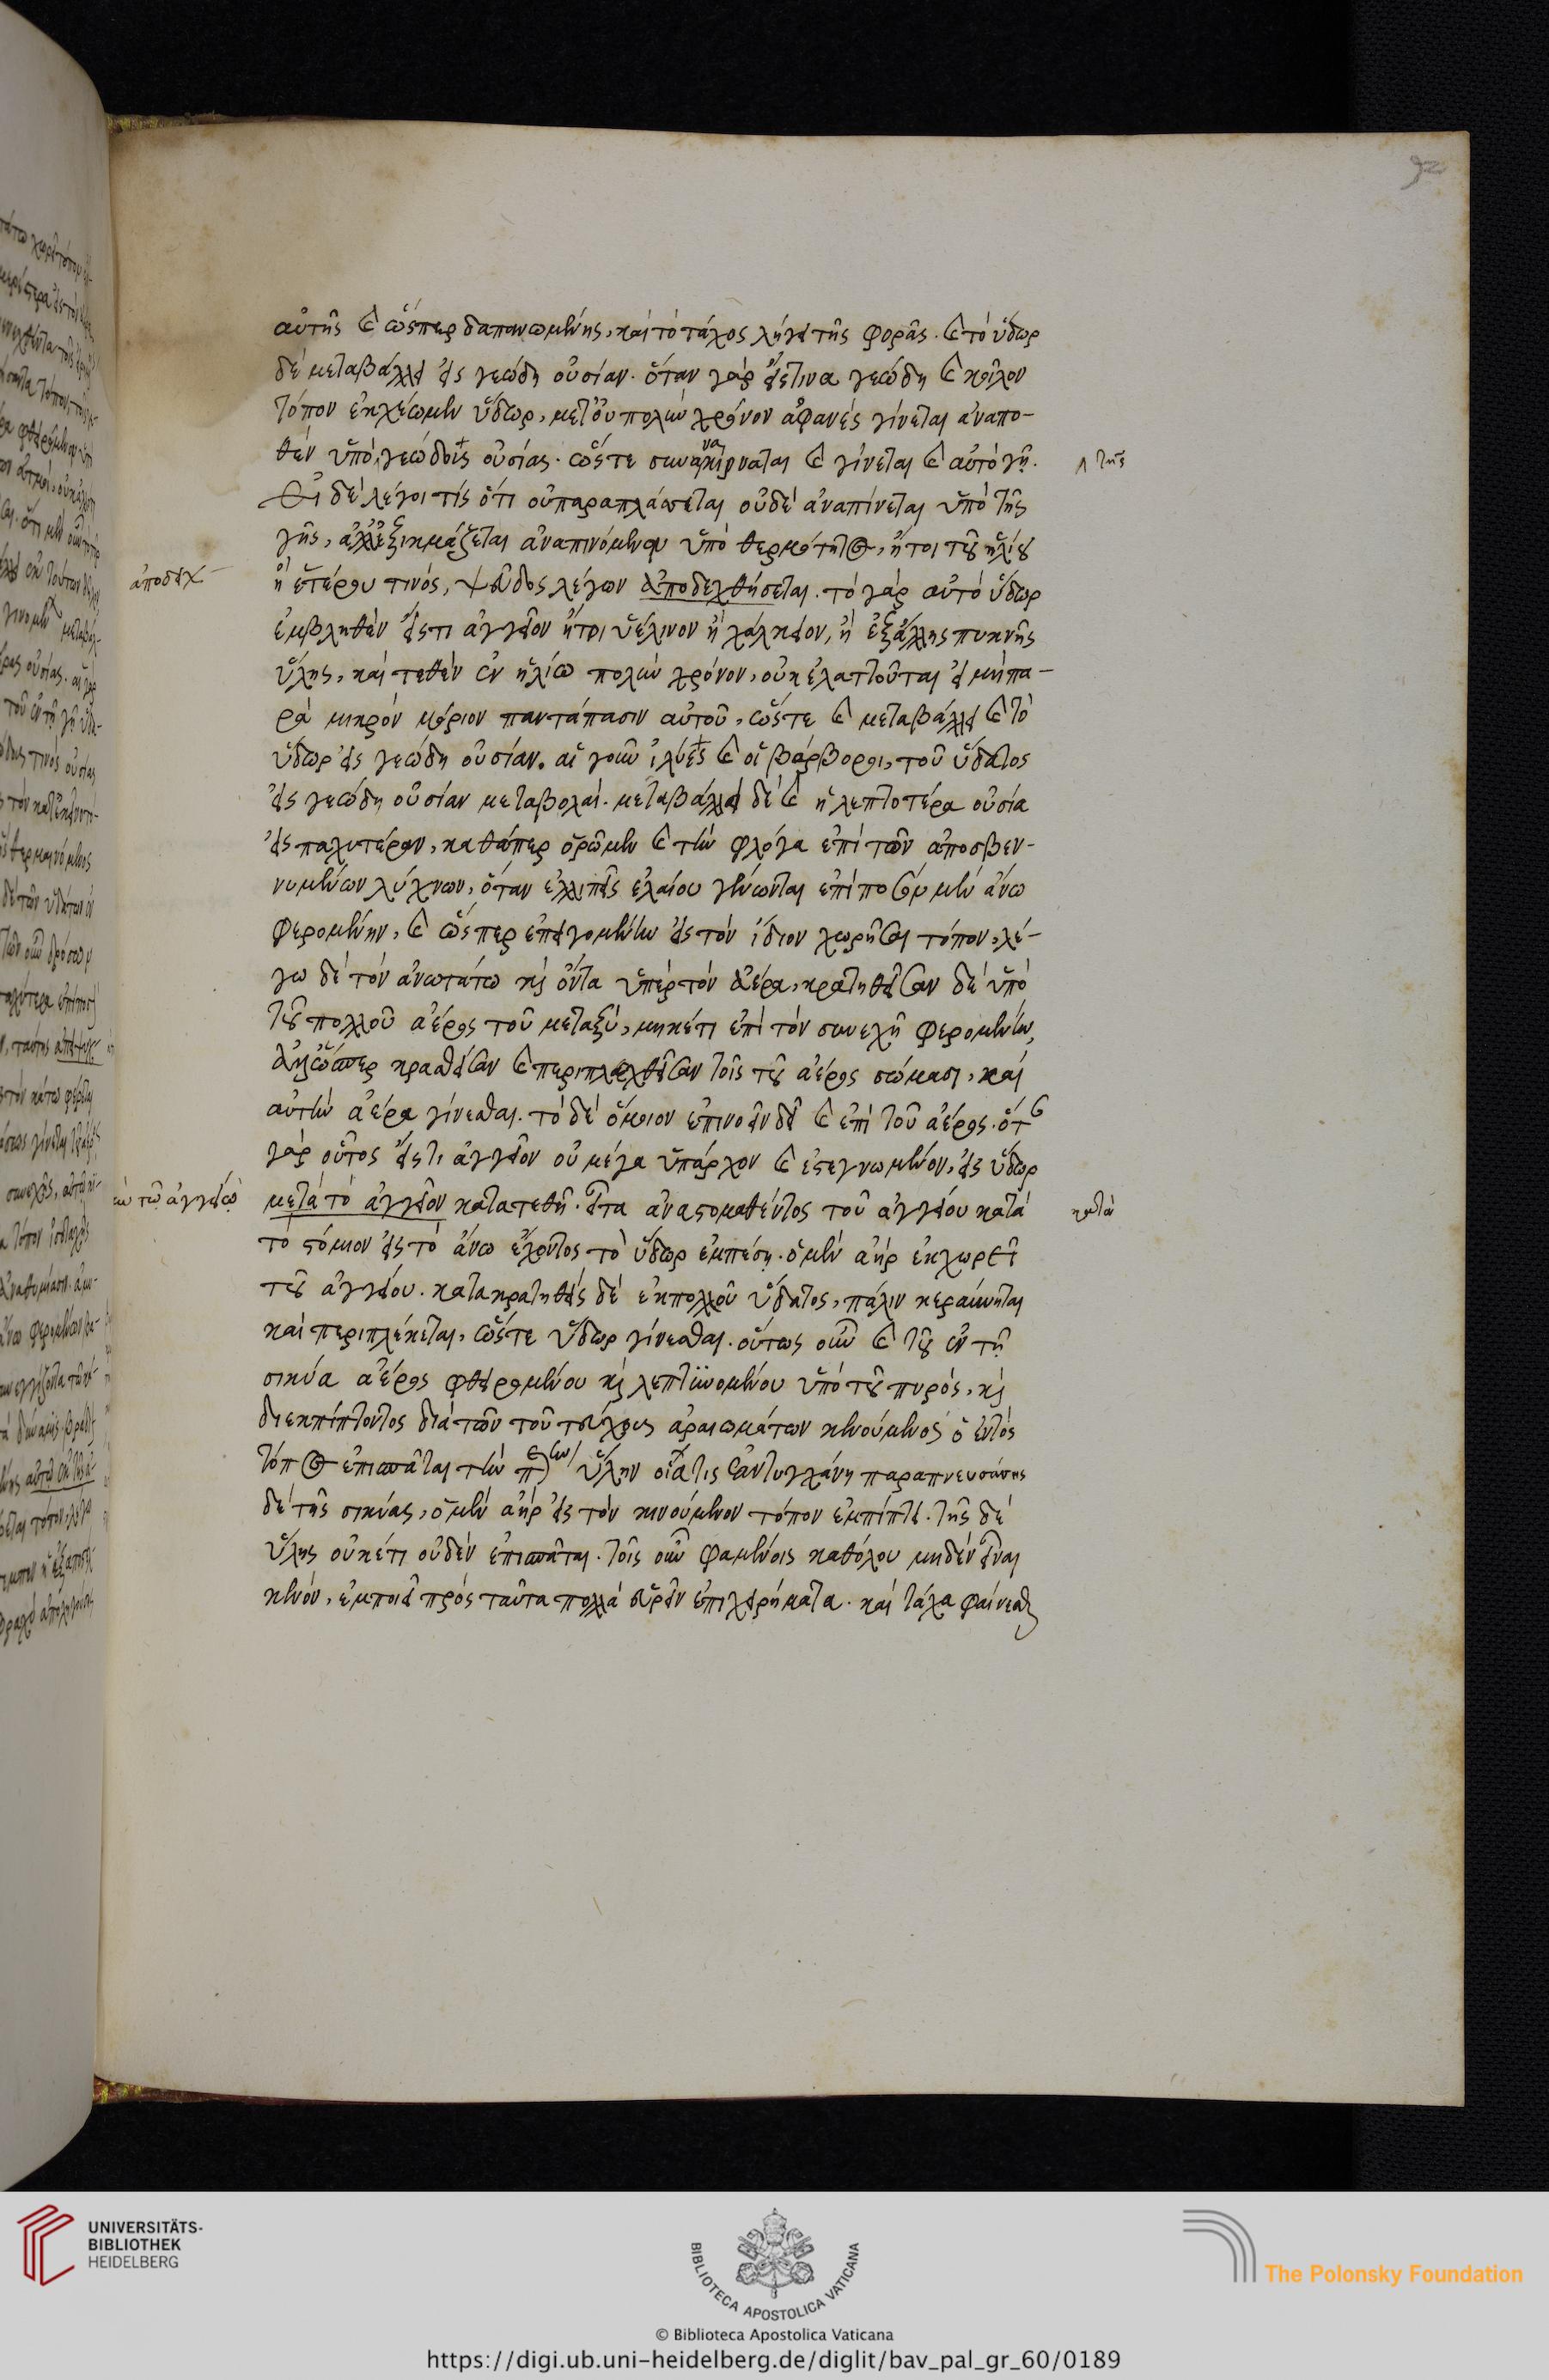 92
αὐτῆς καὶ ὥσπερ δαπανωμένης, καὶ τὸ τάχος λήγει τῆς φορᾶς. καὶ τὸ ὕδωρ
δὲ μεταβάλλει εἰς γεώδη οὐσίαν. ὅταν γὰρ εἴς τινα γεώδη καὶ κοῖλον
τόπον ἐκχέωμεν ὕδωρ, μετ' οὐ πολὺν χρόνον ἀφανὲς γίνεται ἀναπο-
θὲν ὑπὸ γεώδους οὐσίας. ὥστε συνανακίρναται καὶ γίνεται καὶ αὐτὸ γῆ.
τῆς
Εἰ δὲ λέγοι τίς ὅτι οὐ παραπλάσσεται οὐδὲ ἀναπίνεται ὑπὸ τῆς
γῆς, ἀλλ' ἐξικμάζεται ἀναπινόμενον ὑπὸ θερμότητος, ἤτοι τοῦ ἡλίου
ἀποδειχ
ἢ ἑτέρου τινὸς, ψεῦδος λέγων ἀποδειχθήσεται. τὸ γὰρ αὐτὸ ὕδωρ
ἐμβληθὲν εἴς τι ἀγγεῖον ἤτοι ὑέλινον ἢ χάλκειον, ἢ ἐξ ἄλλης πυκνῆς
ὕλης, καὶ τεθὲν ἐν ἡλίω πολὺν χρόνον, οὐκ ἐλαττοῦται εἰ μὴ πα-
ρὰ μικρὸν μόριον παντάπασιν αὐτοῦ, ὥστε καὶ μεταβάλλει καὶ τὸ
ὕδωρ εἰς γεώδη οὐσίαν. αἱ γοῦν ἰλύες καὶ οἱ βάρβοροι, τοῦ ὕδατος
εἰς γεώδη οὐσίαν μεταβολαί. μεταβάλλει δὲ καὶ ἡ λεπτοτέρα οὐσία
εἰς παχυτέραν, καθάπερ ὁρῶμεν καὶ τὴν φλόγα ἐπὶ τῶν ἀποσβεν-
νυμένων λύχνων, ὅταν ἐλλιπεῖς ἐλαίου γένωνται ἐπὶ ποσὸν μὲν ἄνω
φερομένην, καὶ ὥσπερ ἐπειγομένην εἰς τὸν ἴδιον χωρῆσαι τόπον, λέ-
γω δὲ τὸν ἀνωτάτω καὶ ὄντα ὑπὲρ τὸν ἀέρα, κρατηθεῖσαν δὲ ὑπὸ
τοῦ πολλοῦ ἀέρος τοῦ μεταξὺ, μηκέτι ἐπὶ τὸν συνεχῆ φερομένην,
ἀλλ' ὥσπερ κραθεῖσαν καὶ περιπλεχθεῖσαν τοῖς τοῦ ἀέρος σώμασι, καὶ
αὐτὴν ἀέρα γίνεσθαι. τὸ δὲ ὅμοιον ἐπινοεῖν δεῖ καὶ ἐπὶ τοῦ ἀέρος. ὅταν
γὰρ οὗτος εἴς τι ἀγγεῖον οὐ μέγα ὑπάρχον καὶ ἐστεγνωμένον, εἰς ὕδωρ
ἐν τῶ ἀγγείω
μετὰ τὸ ἀγγεῖον κατατεθῆ. εἶτα ἀναστομωθέντος τοῦ ἀγγείου κατὰ
κατὰ
τὸ στόμιον εἰς τὸ ἄνω ἔχοντος τὸ ὕδωρ ἐμπέση. ὁ μὲν ἀὴρ ἐκχωρεῖ
τοῦ ἀγγείου. κατακρατηθεὶς δὲ ἐκ πολλοῦ ὕδατος, πάλιν κεράννυται
καὶ περιπλέκεται, ὥστε ὕδωρ γίνεσθαι. οὕτως οὖν καὶ τοῦ ἐν τῆ
σικύα ἀέρος φθειρομένου καὶ λεπτϋνομένου ὑπὸ τοῦ πυρὸς, καὶ
διεκπίπτοντος διὰ τῶν τοῦ τεύχους ἀραιωμάτων κενούμενος ὁ ἐντὸς
τόπος ἐπισπᾶται τὴν ὕλην οἵα τις ἂν τυγχάνη παραπνευσάσης
δὲ τῆς σικύας, ὁ μὲν ἀὴρ εἰς τὸν κινούμενον τόπον ἐμπίπτει. τῆς δὲ
ὕλης οὐκέτι οὐδὲν ἐπισπᾶται. τοῖς οὖν φαμένοις καθόλου μηδὲν εἶναι
κενὸν, ἐμποιεῖ πρὸς ταῦτα πολλὰ εὑρεῖν ἐπιχειρήματα. καὶ τάχα φαίνεσθαι
UNIVERSITÄTS-
BIBLIOTHEK
HEIDELBERG
BIBLIOTECA APOSTOLICA VATICANA
The Polonsky Foundation
© Biblioteca Apostolica Vaticana
https://digi.ub.uni-heidelberg.de/diglit/bav_pal_gr_60/0189